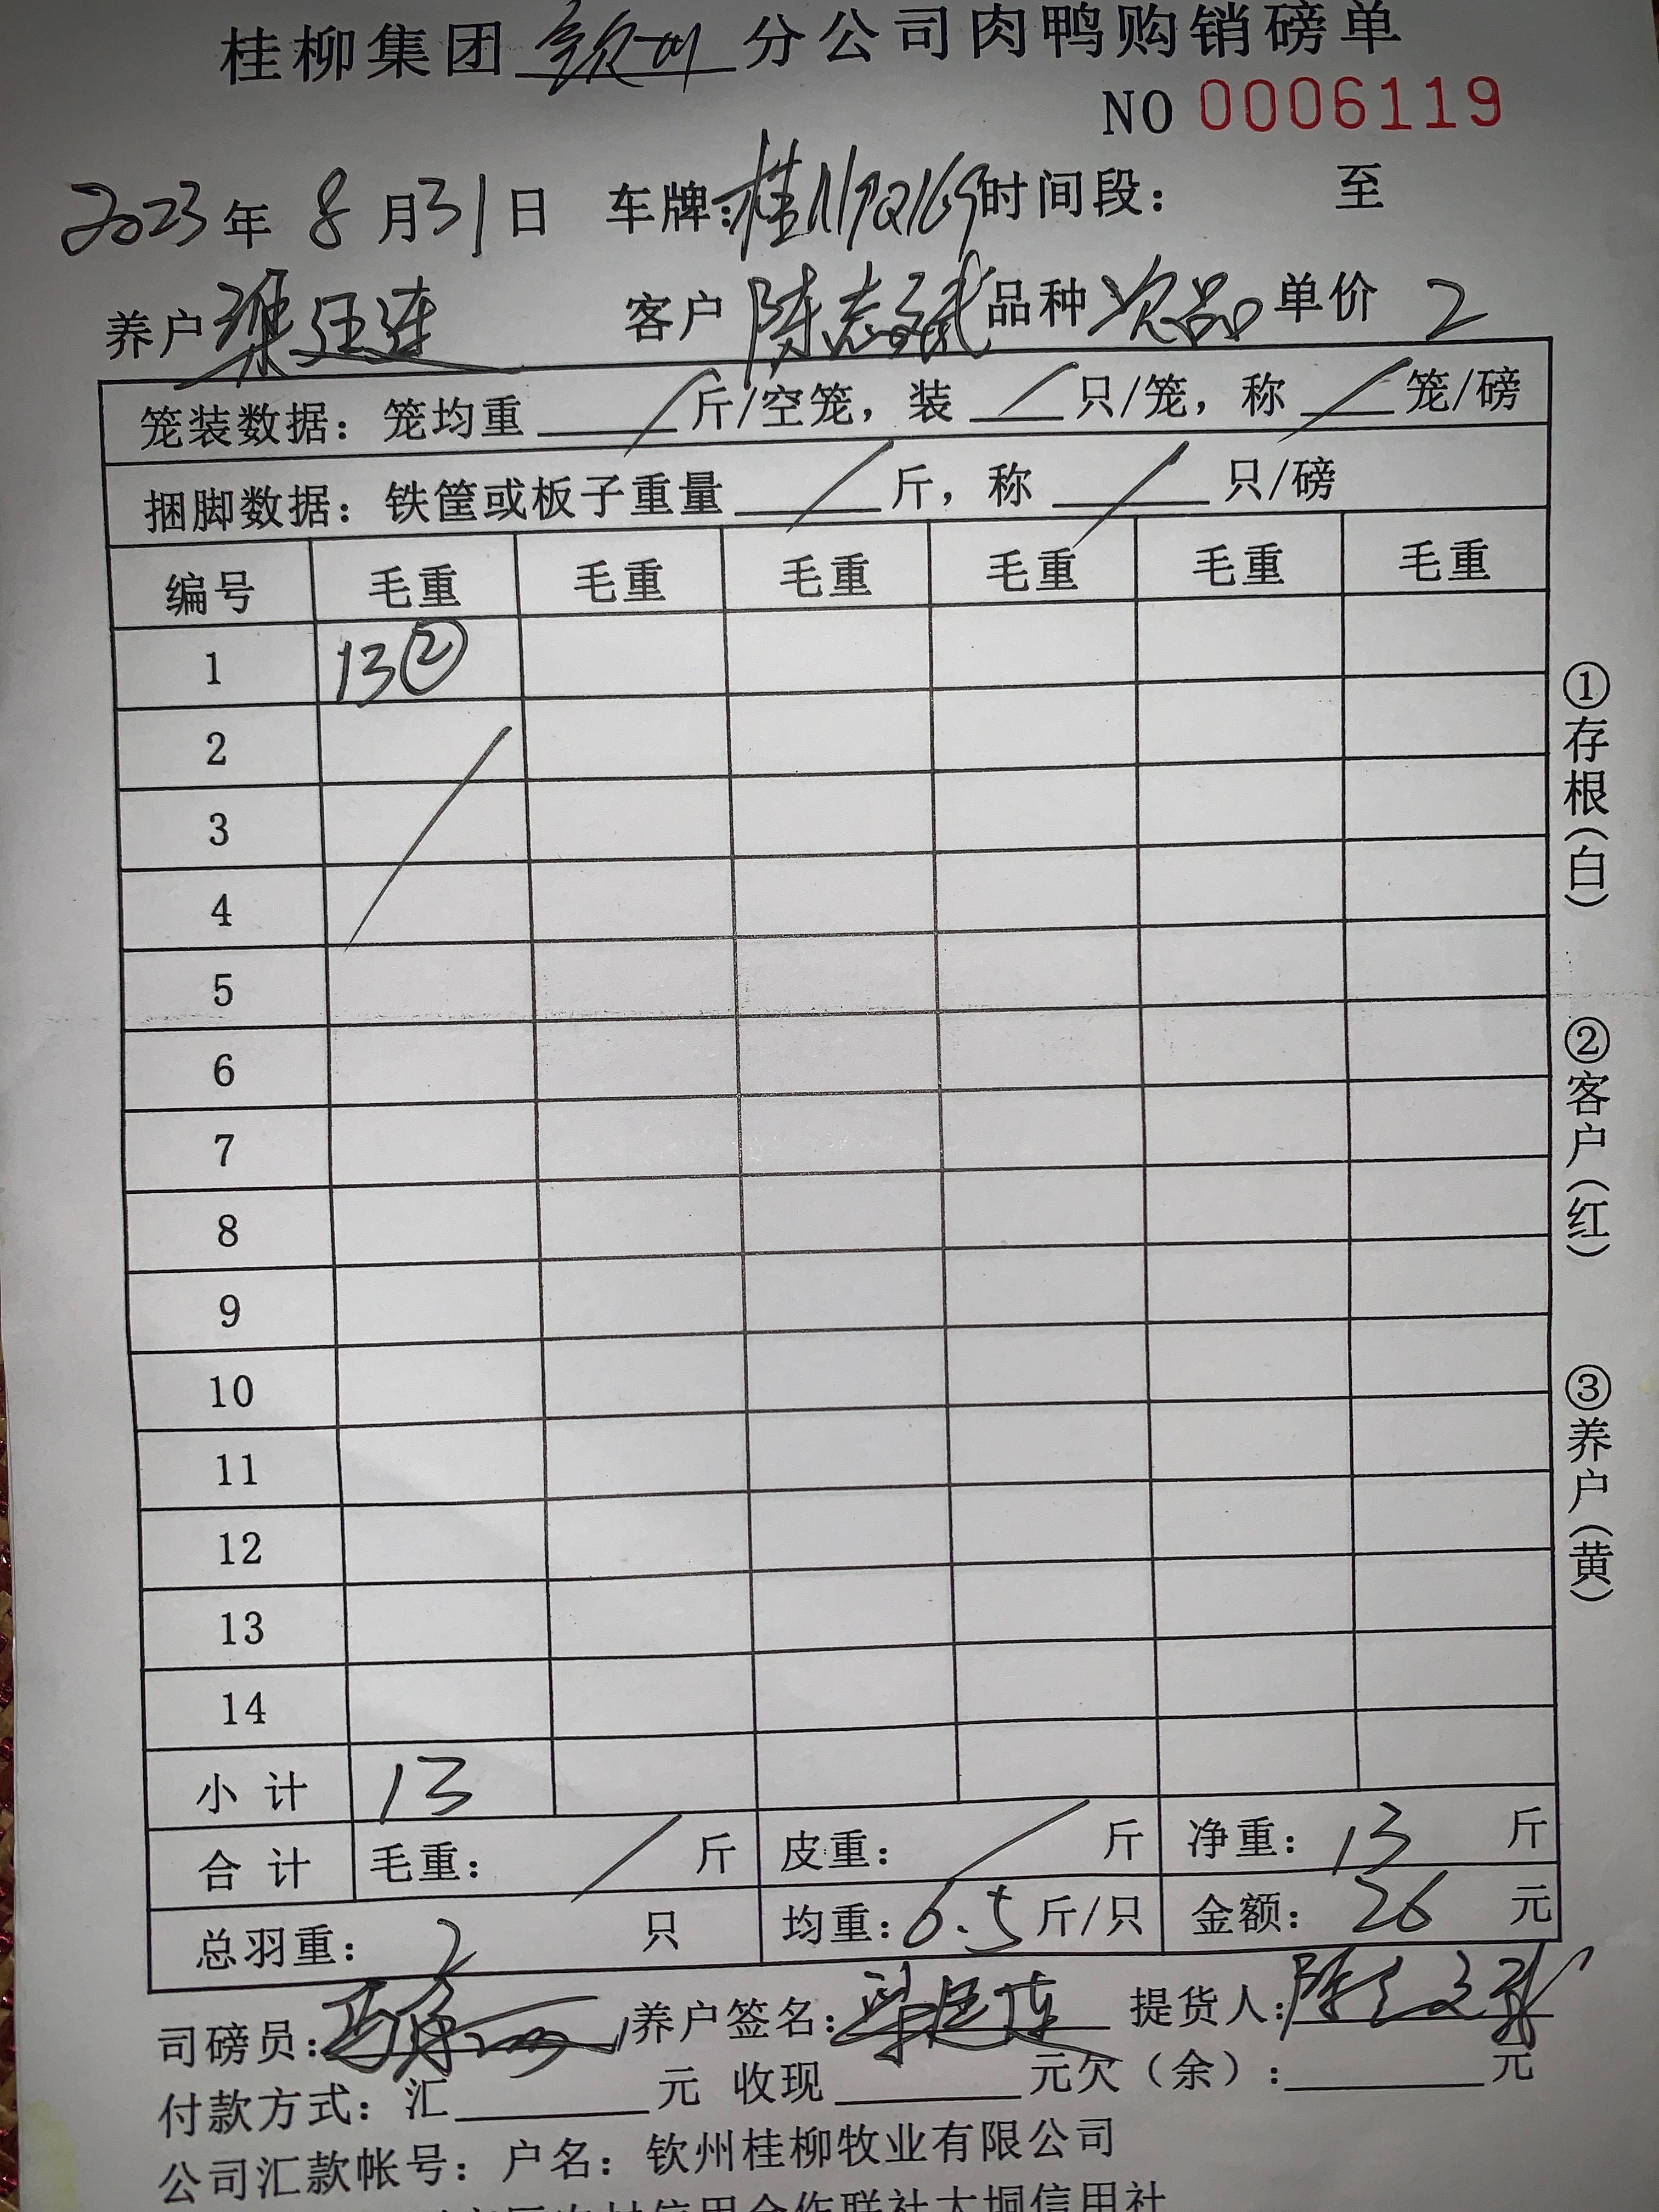 桂柳集团 钦州 分公司肉鸭购销磅单
NO 0006119
2023年 8 月31日 车牌: 时间段: 至
养户 客户 品种 次品 单价 2
笼装数据: 笼均重 / 斤/空笼, 装 / 只/笼, 称 / 笼/磅
捆脚数据: 铁筐或板子重量 / 斤, 称 / 只/磅
编号 毛重 毛重 毛重 毛重 毛重 毛重
1 13②
2
3
4
5
6
7
8
9
10
11
12
13
14
小 计 13
合 计 毛重: / 斤 皮重: / 斤 净重: 13 斤
总羽重: 2 只 均重: 6.5 斤/只 金额: 26 元
①存根(白)
②客户(红)
③养户(黄)
司磅员: 养户签名: 提货人:
付款方式: 汇 元 收现 元欠(余): 元
公司汇款帐号: 户名: 钦州桂柳牧业有限公司